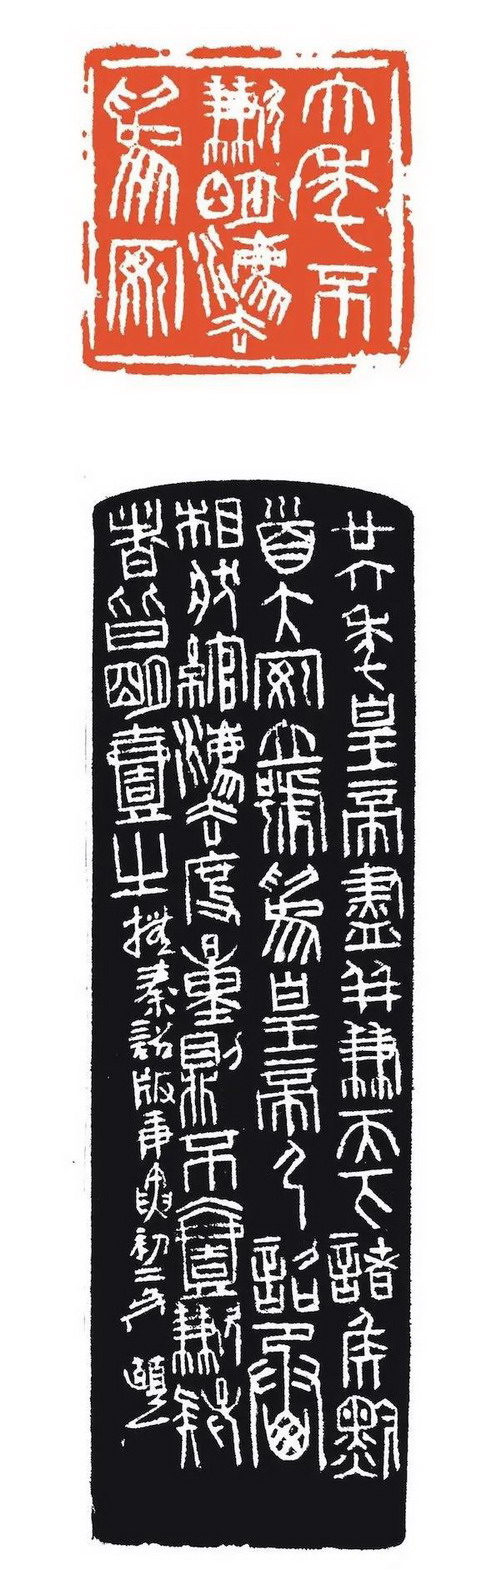 六年不
歉明灋
為安
廿六年皇帝盡并兼天下諸侯黔
首大安立號為皇帝乃詔丞
相狀綰灋度量則不壹歉疑
者皆明壹之 橅秦詔版 初